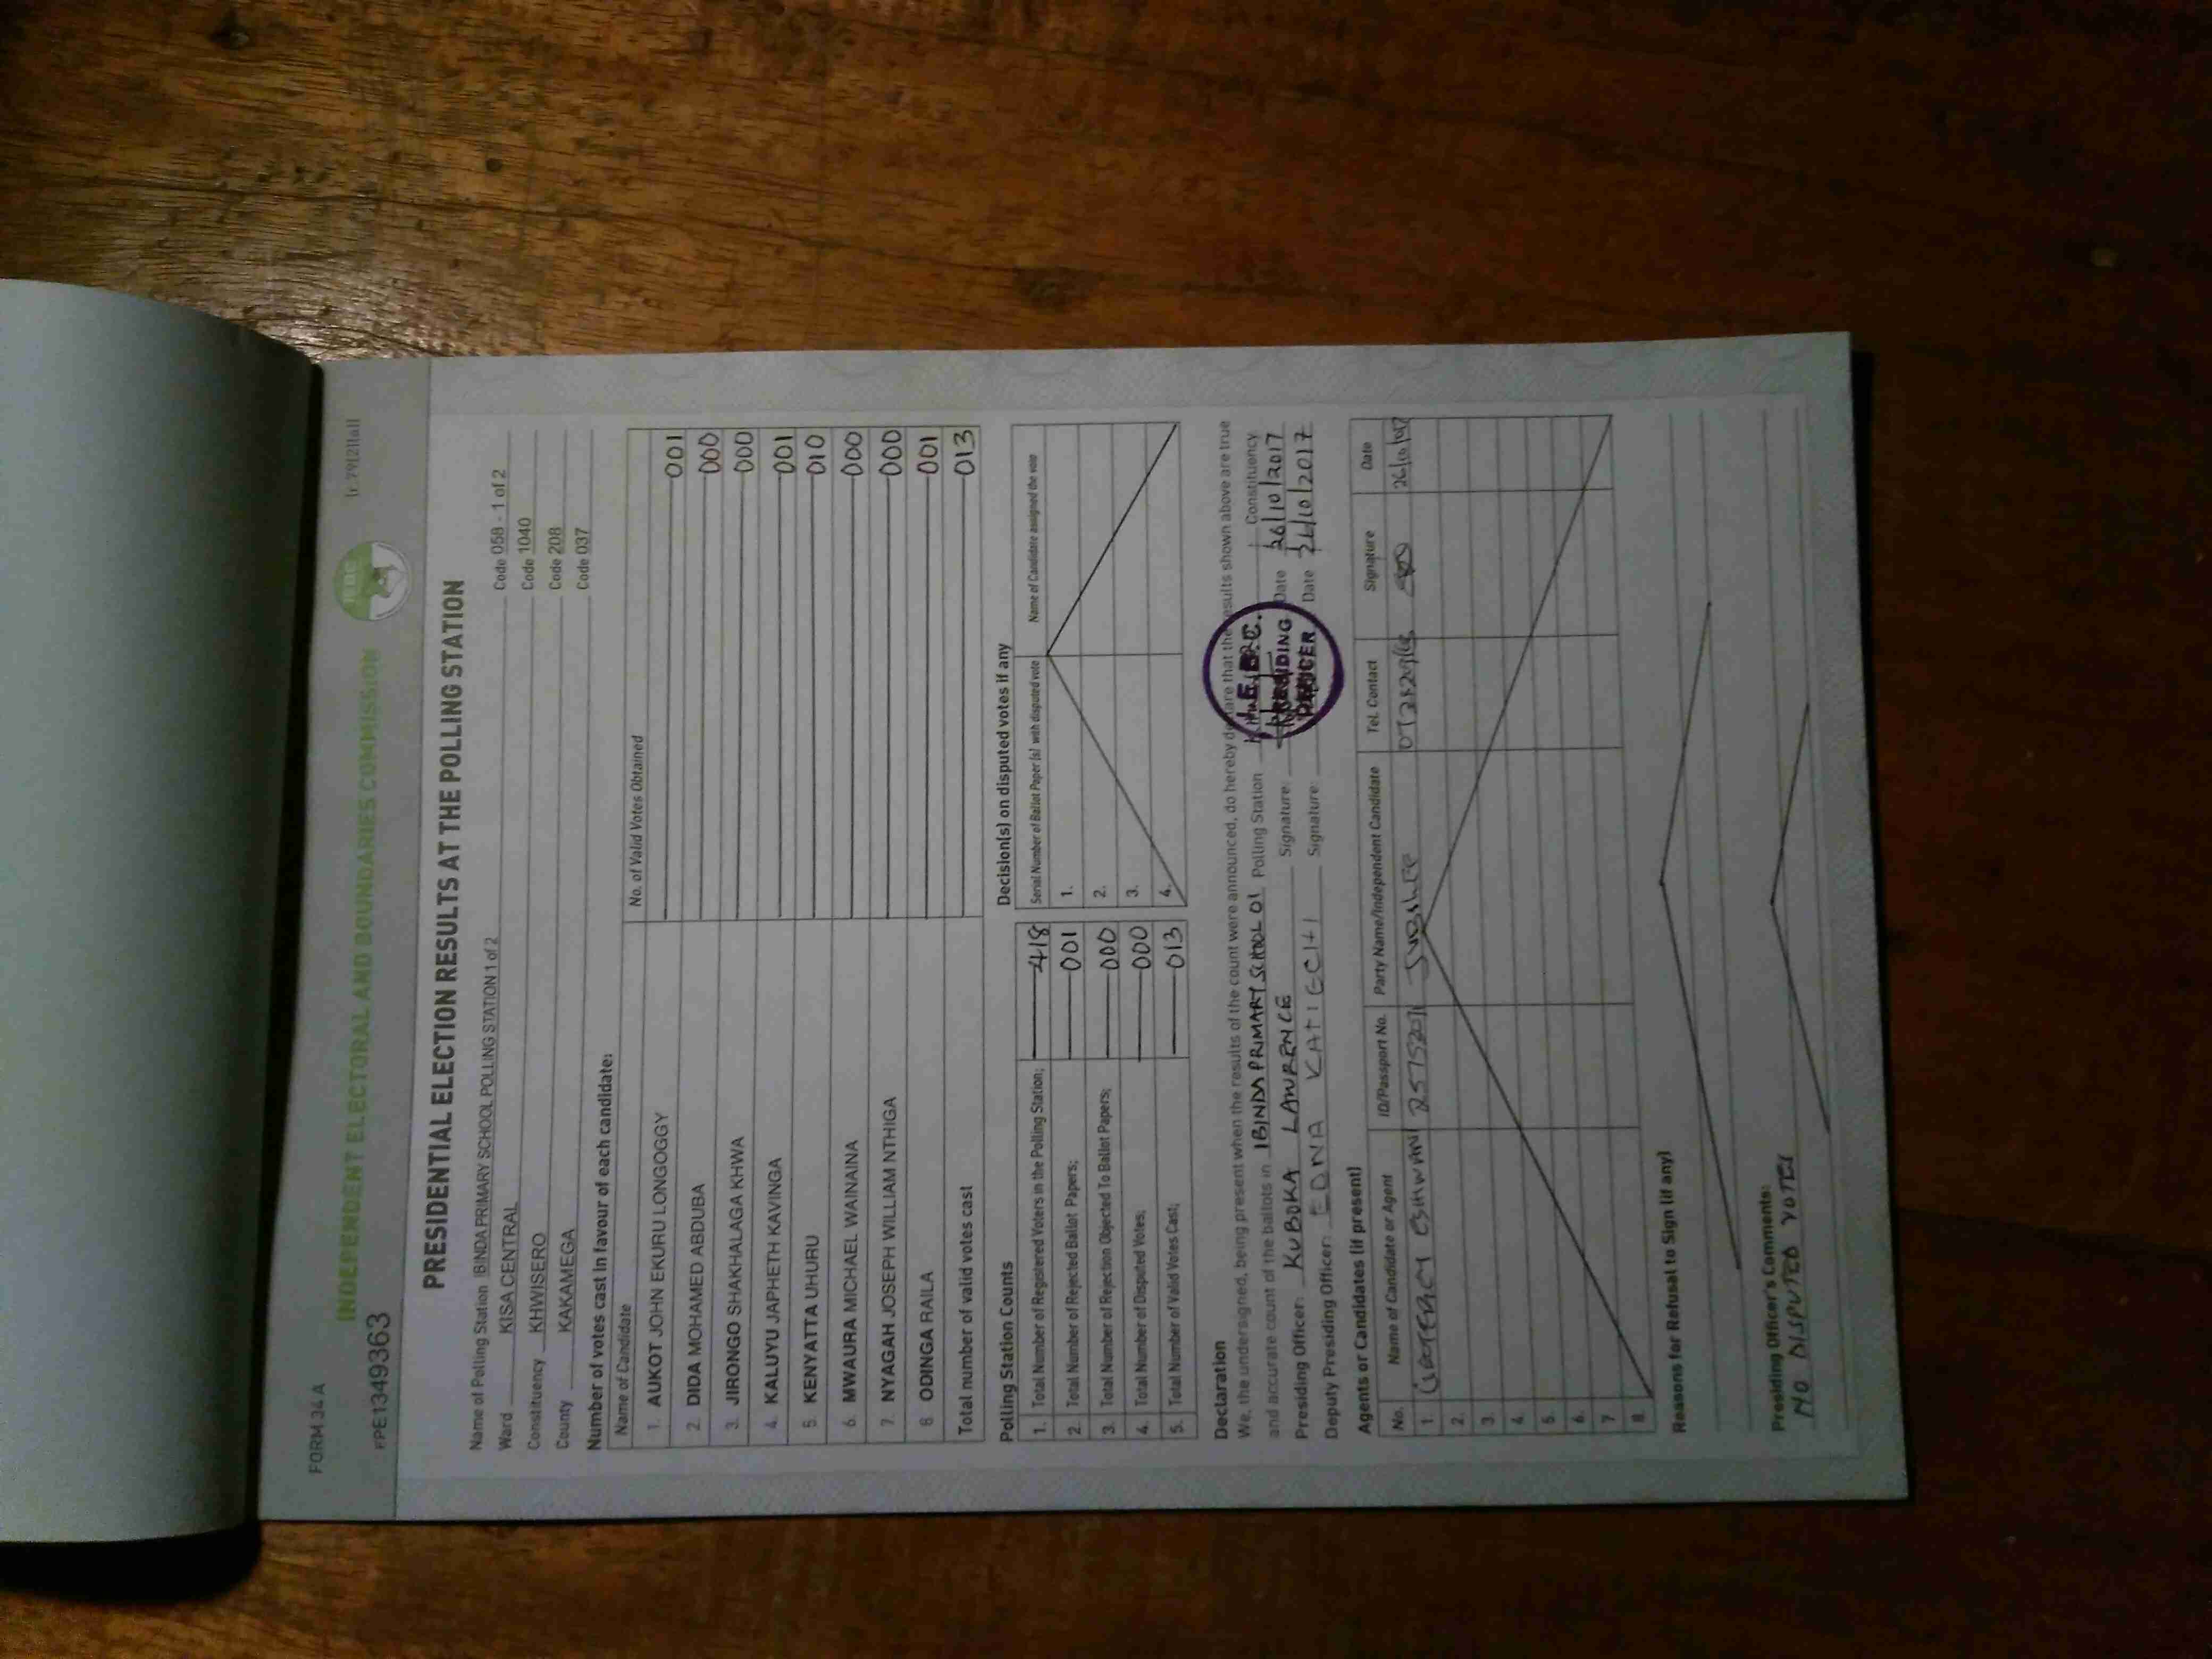 FORM 34 A
INDEPENDENT ELECTORAL AND BOUNDARIES COMMISSION
IEBC
PE1349363
PRESIDENTIAL ELECTION RESULTS AT THE POLLING STATION
Name of Polling Station IBINDA PRIMARY SCHOOL POLLING STATION 1 of 2 Code 058 - 1 of 2
Ward KISA CENTRAL Code 1040
Constituency KHWISERO Code 208
County KAKAMEGA Code 037
Number of votes cast in favour of each candidate:
Name of Candidate No. of Valid Votes Obtained
1. AUKOT JOHN EKURU LONGOGGY 001
2. DIDA MOHAMED ABDUBA 000
3. JIRONGO SHAKHALAGA KHWA 000
4. KALUYU JAPHETH KAVINGA 001
5. KENYATTA UHURU 010
6. MWAURA MICHAEL WAINAINA 000
7. NYAGAH JOSEPH WILLIAM NTHIGA 000
8 ODINGA RAILA 001
Total number of valid votes cast 013
Polling Station Counts
1. Total Number of Registered Voters in the Polling Station; 418
2. Total Number of Rejected Ballot Papers; 001
3. Total Number of Rejection Objected To Ballot Papers; 000
4. Total Number of Disputed Votes; 000
5. Total Number of Valid Votes Cast; 013
Decision(s) on disputed votes if any
Serial Number of Ballot Paper (s) with disputed vote Name of Candidate assigned the vote
1.
2.
3.
4.
Declaration
We, the undersigned, being present when the results of the count were announced, do hereby declare that the results shown above are true
and accurate count of the ballots in IBINDA PRIMARY SCHOOL 01 Polling Station Constituency
Presiding Officer: KUBOKA LAWRENCE Signature: Date 26/10/2017
Deputy Presiding Officer: EDNA Signature: Date 26/10/2017
I.E.B.C.
PRESIDING
OFFICER
Agents or Candidates (if present)
No. Name of Candidate or Agent ID/Passport No. Party Name/Independent Candidate Tel. Contact Signature Date
1. JUBILEE
2.
3.
4
5.
6.
7
8.
Reasons for Refusal to Sign (if any)
Presiding Officer's Comments:
NO DISPUTED VOTES